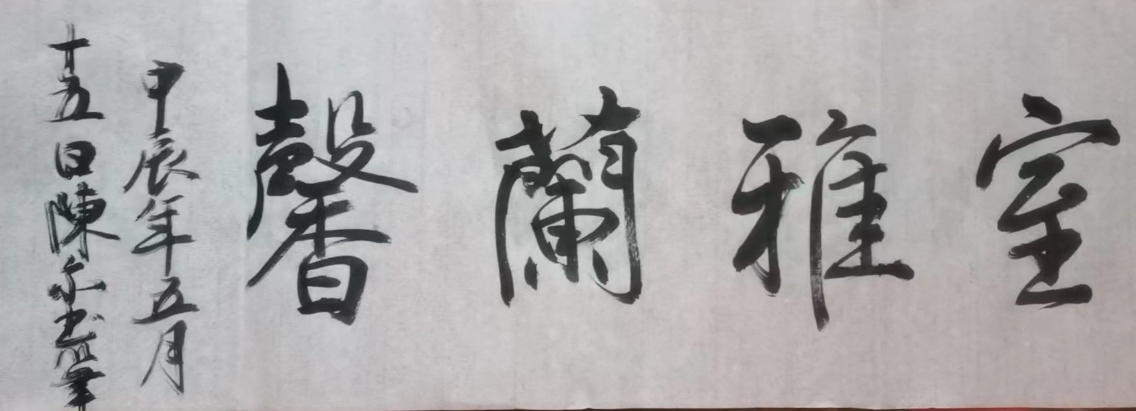 室雅蘭馨
甲辰年五月
十五日陳